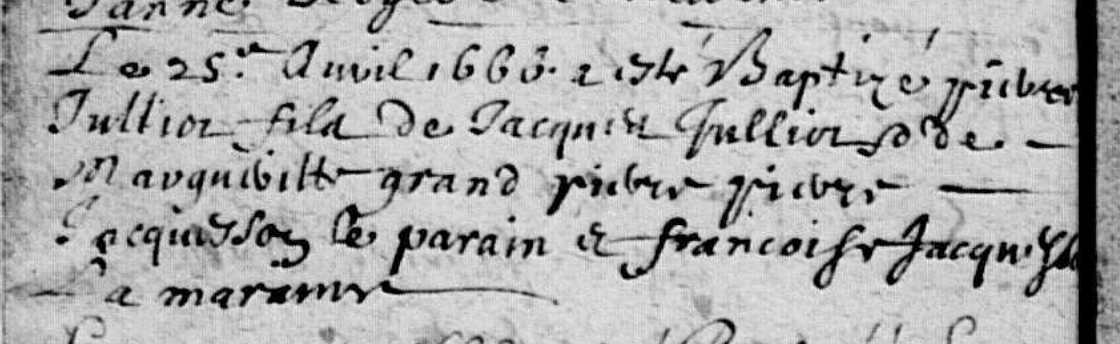 Le 25e Avril 1666 a esté Baptizé pierre
Jullior fils de Jacques Jullior & de
grand pierre pierre
Jacquesson le parain & francoise Jacques
la maraine